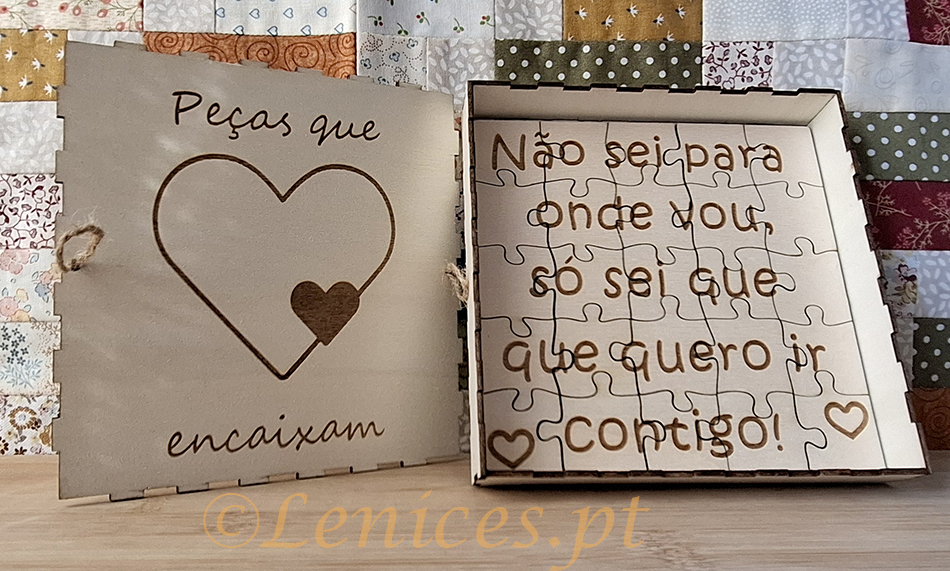 Peças que
encaixam
Não sei para
onde vou,
só sei que
que quero ir
contigo!
©Lenices.pt